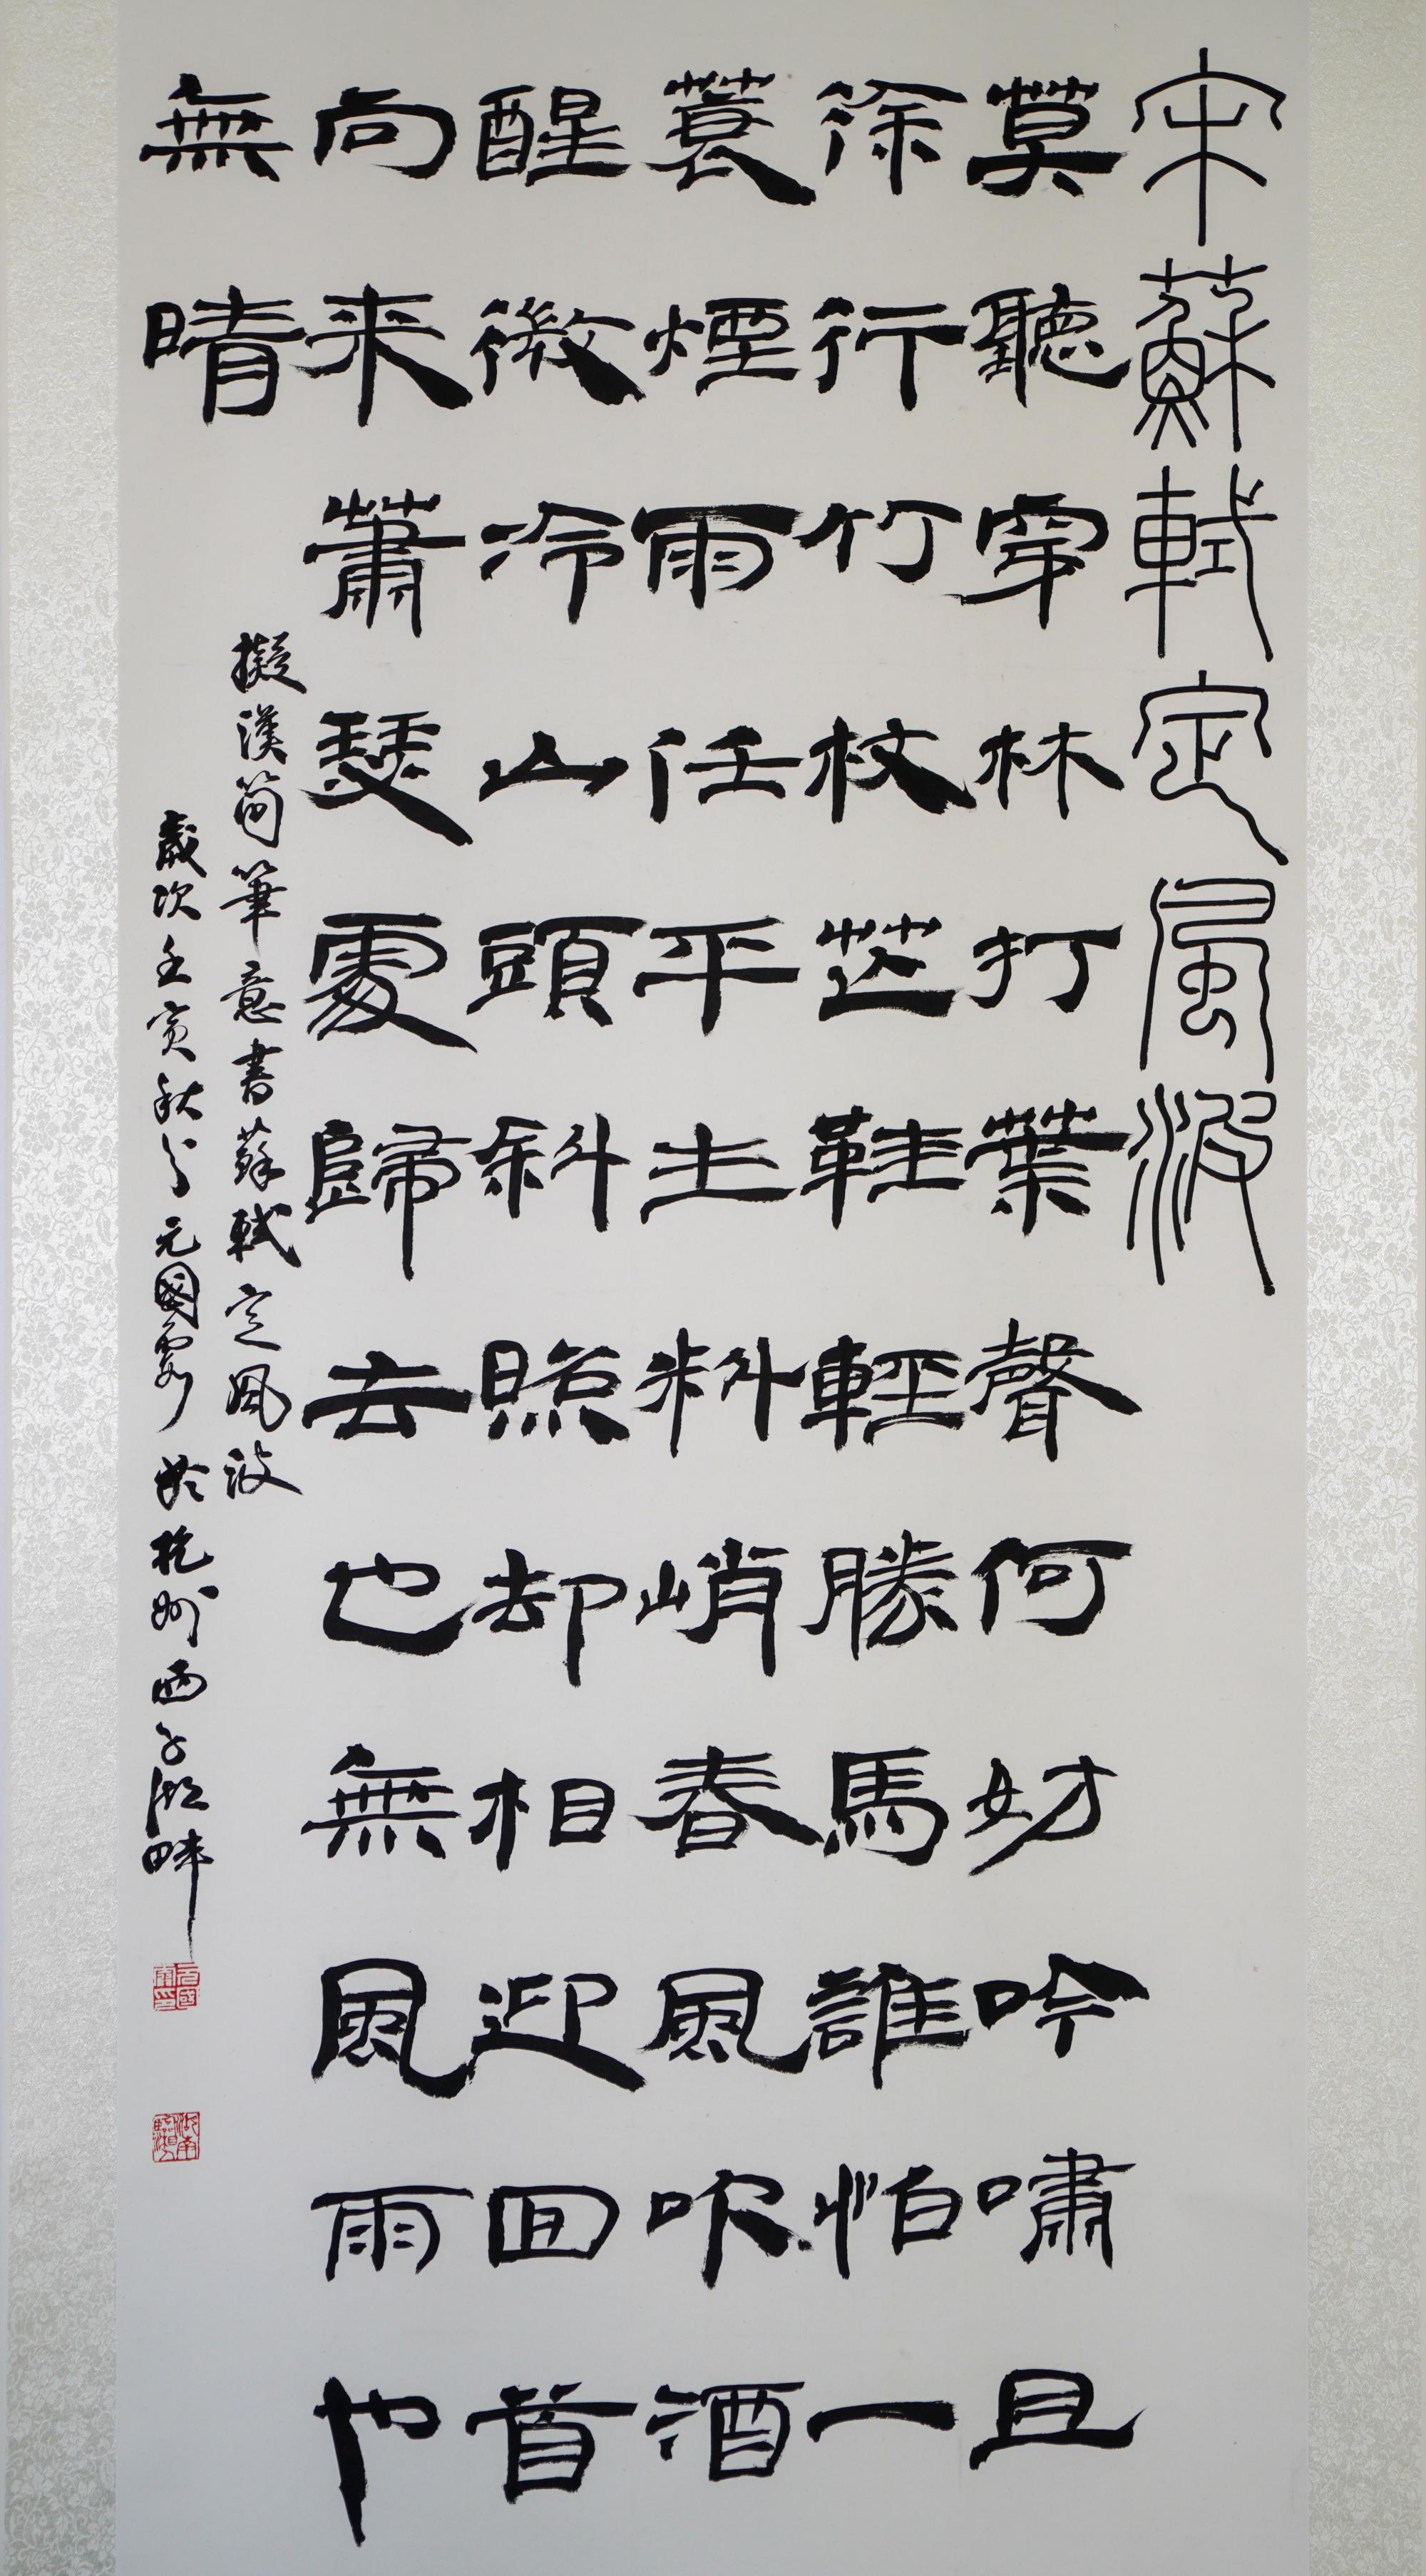 宋蘇軾定風波
莫聽穿林打葉聲何妨吟嘯且
徐行竹杖芒鞋輕勝馬誰怕一
蓑煙雨任平生料峭春風吹酒
醒微冷山頭斜照却相迎回首
向来蕭瑟處歸去也無風雨也
無晴
擬漢簡筆意書蘇軾定風波
歲次壬寅秋分元國於杭州西子湖畔
湖南臨湘